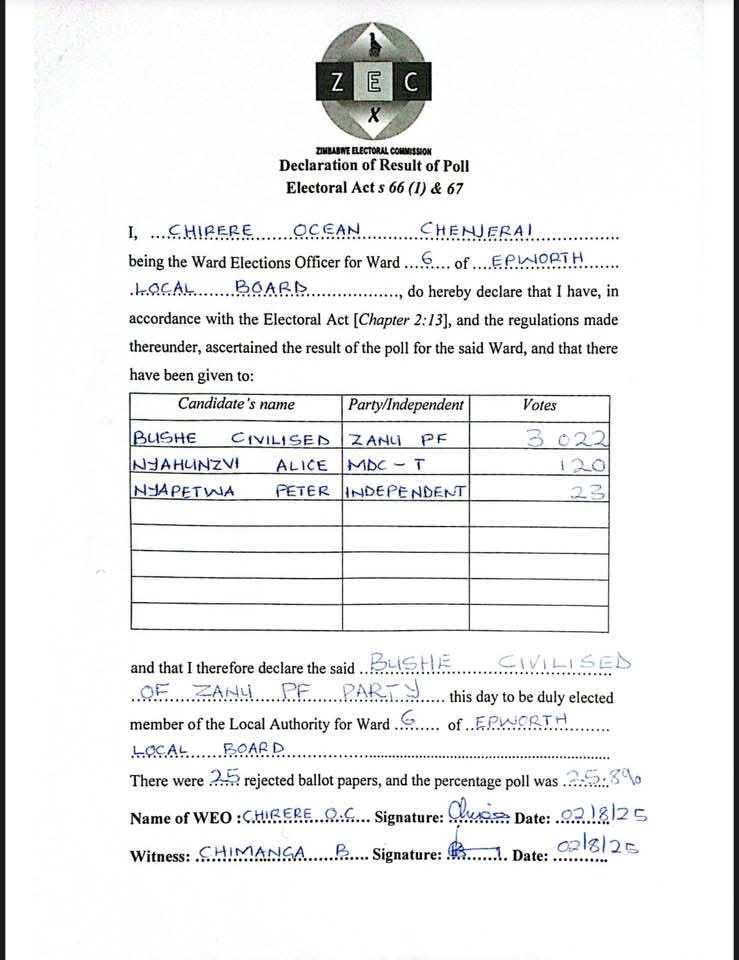 Z E C
X
ZIMBABWE ELECTORAL COMMISSION
Declaration of Result of Poll
Electoral Act s 66 (1) & 67
I, ...CHIRERE......OCEAN..........CHENJERAI...............
being the Ward Elections Officer for Ward ....6... of ....EPWORTH.......
.LOCAL......BOARD...................., do hereby declare that I have, in
accordance with the Electoral Act [Chapter 2:13], and the regulations made
thereunder, ascertained the result of the poll for the said Ward, and that there
have been given to:
Candidate's name Party/Independent Votes
BUSHE CIVILISED ZANU PF 3 022
NYAHUNZVI ALICE MDC - T 120
NYAPETWA PETER INDEPENDENT 23
and that I therefore declare the said ..BUSHE........CIVILISED
..OF....ZANU.....PF.....PARTY..... this day to be duly elected
member of the Local Authority for Ward .6..... of ..EPWORTH.........
LOCAL.....BOARD.......................................................
There were .25 rejected ballot papers, and the percentage poll was .25.8%
Name of WEO :CHIRERE..O.C.... Signature: Date: .02/8/25
Witness: .CHIMANGA.....B.... Signature: Date: 02/8/25